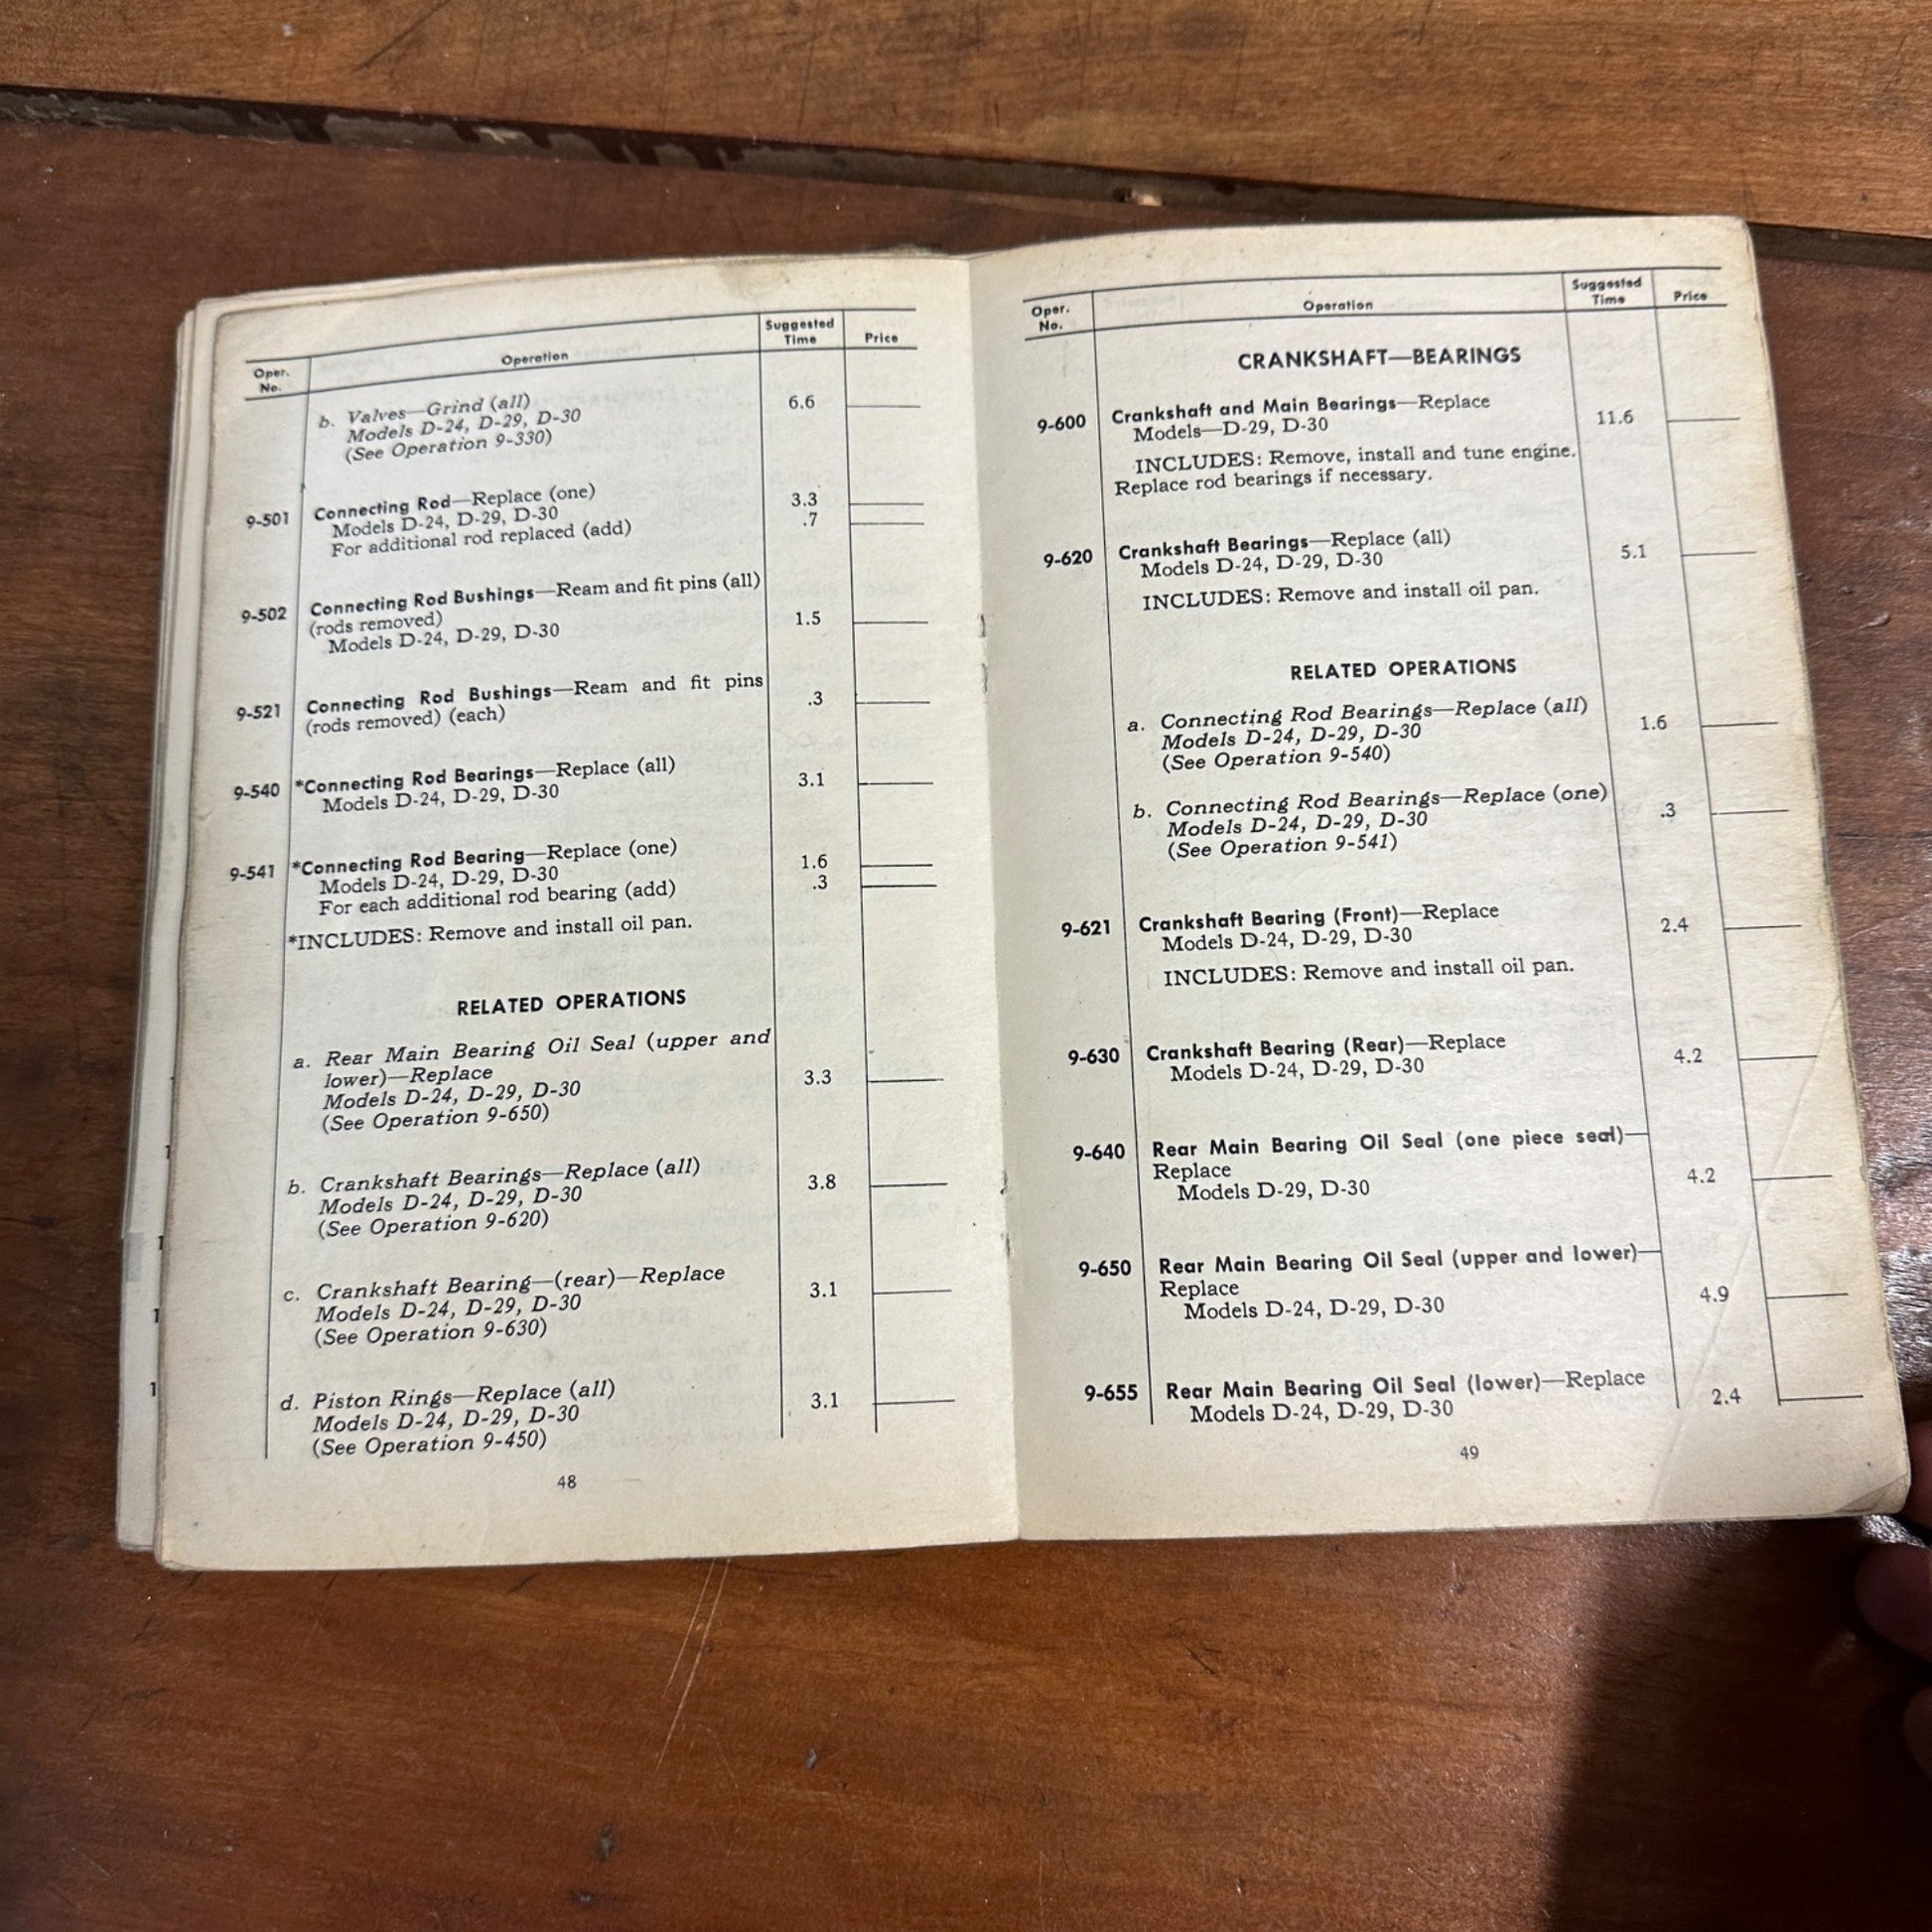 Oper. No.
Operation
Suggested Time
Price
b. Valves—Grind (all)
Models D-24, D-29, D-30 6.6
(See Operation 9-330)
9-501 Connecting Rod—Replace (one)
Models D-24, D-29, D-30 3.3
For additional rod replaced (add) .7
9-502 Connecting Rod Bushings—Ream and fit pins (all)
(rods removed)
Models D-24, D-29, D-30 1.5
9-521 Connecting Rod Bushings—Ream and fit pins
(rods removed) (each) .3
9-540 *Connecting Rod Bearings—Replace (all)
Models D-24, D-29, D-30 3.1
9-541 *Connecting Rod Bearing—Replace (one)
Models D-24, D-29, D-30 1.6
For each additional rod bearing (add) .3
*INCLUDES: Remove and install oil pan.
RELATED OPERATIONS
a. Rear Main Bearing Oil Seal (upper and
lower)—Replace
Models D-24, D-29, D-30 3.3
(See Operation 9-650)
b. Crankshaft Bearings—Replace (all)
Models D-24, D-29, D-30 3.8
(See Operation 9-620)
c. Crankshaft Bearing—(rear)—Replace
Models D-24, D-29, D-30 3.1
(See Operation 9-630)
d. Piston Rings—Replace (all)
Models D-24, D-29, D-30 3.1
(See Operation 9-450)
48
Oper. No.
Operation
Suggested Time
Price
CRANKSHAFT—BEARINGS
9-600 Crankshaft and Main Bearings—Replace
Models—D-29, D-30 11.6
INCLUDES: Remove, install and tune engine.
Replace rod bearings if necessary.
9-620 Crankshaft Bearings—Replace (all)
Models D-24, D-29, D-30 5.1
INCLUDES: Remove and install oil pan.
RELATED OPERATIONS
a. Connecting Rod Bearings—Replace (all)
Models D-24, D-29, D-30 1.6
(See Operation 9-540)
b. Connecting Rod Bearings—Replace (one)
Models D-24, D-29, D-30 .3
(See Operation 9-541)
9-621 Crankshaft Bearing (Front)—Replace
Models D-24, D-29, D-30 2.4
INCLUDES: Remove and install oil pan.
9-630 Crankshaft Bearing (Rear)—Replace
Models D-24, D-29, D-30 4.2
9-640 Rear Main Bearing Oil Seal (one piece seal)—
Replace
Models D-29, D-30 4.2
9-650 Rear Main Bearing Oil Seal (upper and lower)—
Replace
Models D-24, D-29, D-30 4.9
9-655 Rear Main Bearing Oil Seal (lower)—Replace
Models D-24, D-29, D-30 2.4
49